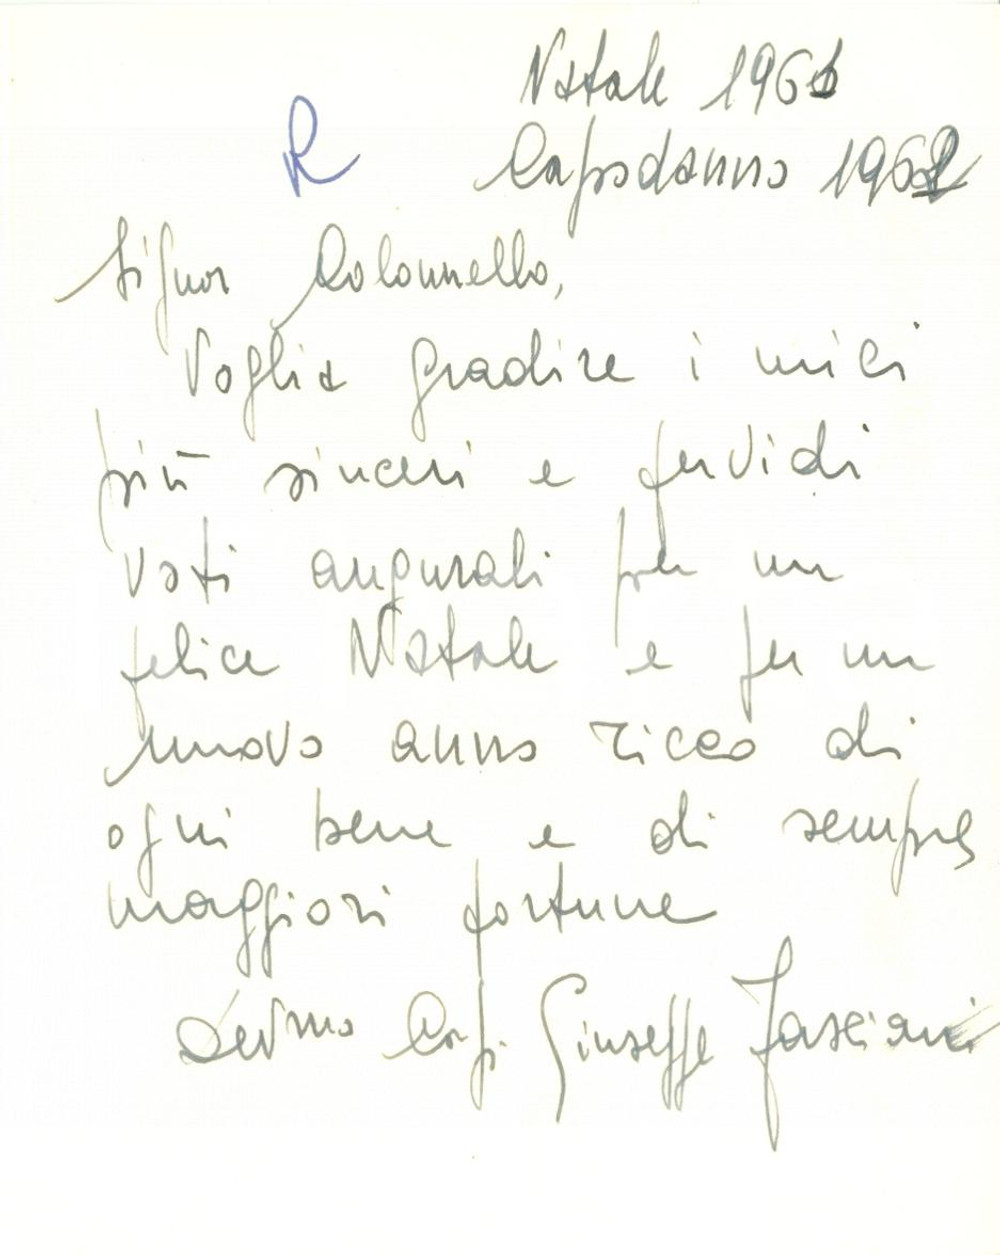 Natale 1961
R
Capodanno 1962
Signor Colonnello,
Voglia gradire i miei
più sinceri e fervidi
voti augurali per un
felice Natale e per un
nuovo anno ricco di
ogni bene e di sempre
maggiori fortune
Dev.mo Cap. Giuseppe Fasciani